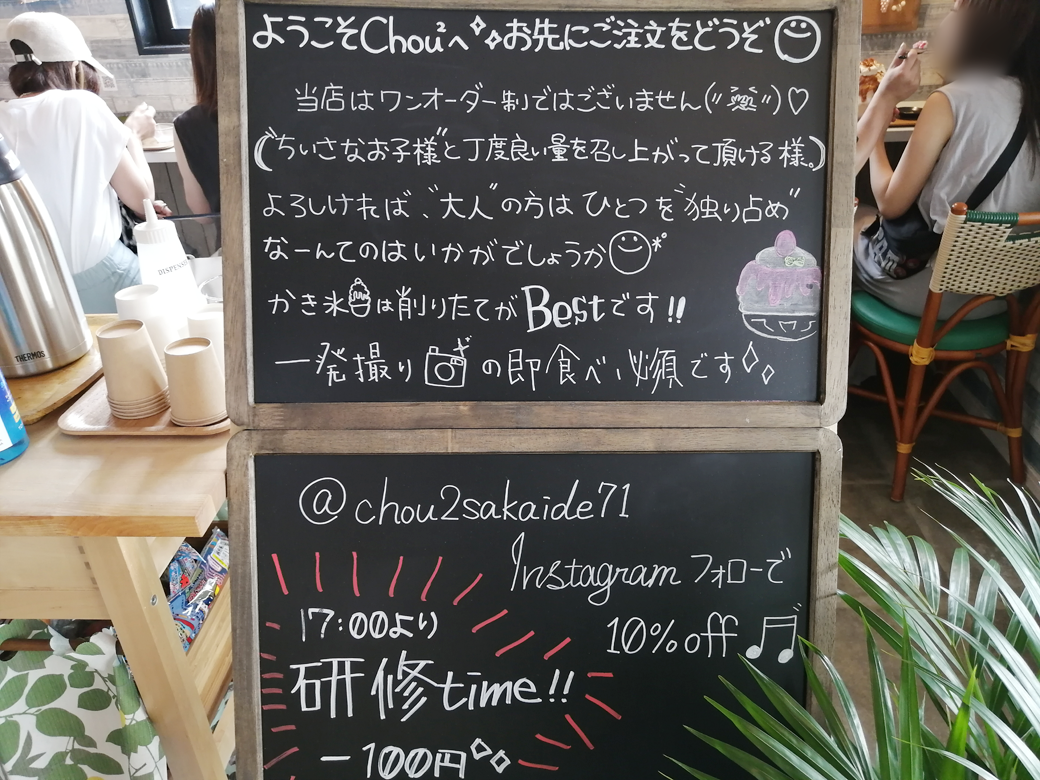 ようこそChou²へ お先にご注文をどうぞ
当店はワンオーダー制ではございません(〃 〃)♡
("ちいさなお子様"と丁度良い量を召し上がって頂ける様。)
よろしければ、"大人"の方はひとつを"独り占め"
なーんてのはいかがでしょうか
かき氷は削りたてがBestです!!
一発撮りの即食べ必須です
@chou2sakaide71
Instagram フォローで
10%off
17:00より
研修time!!
-100円
THERMOS
DISPENSER